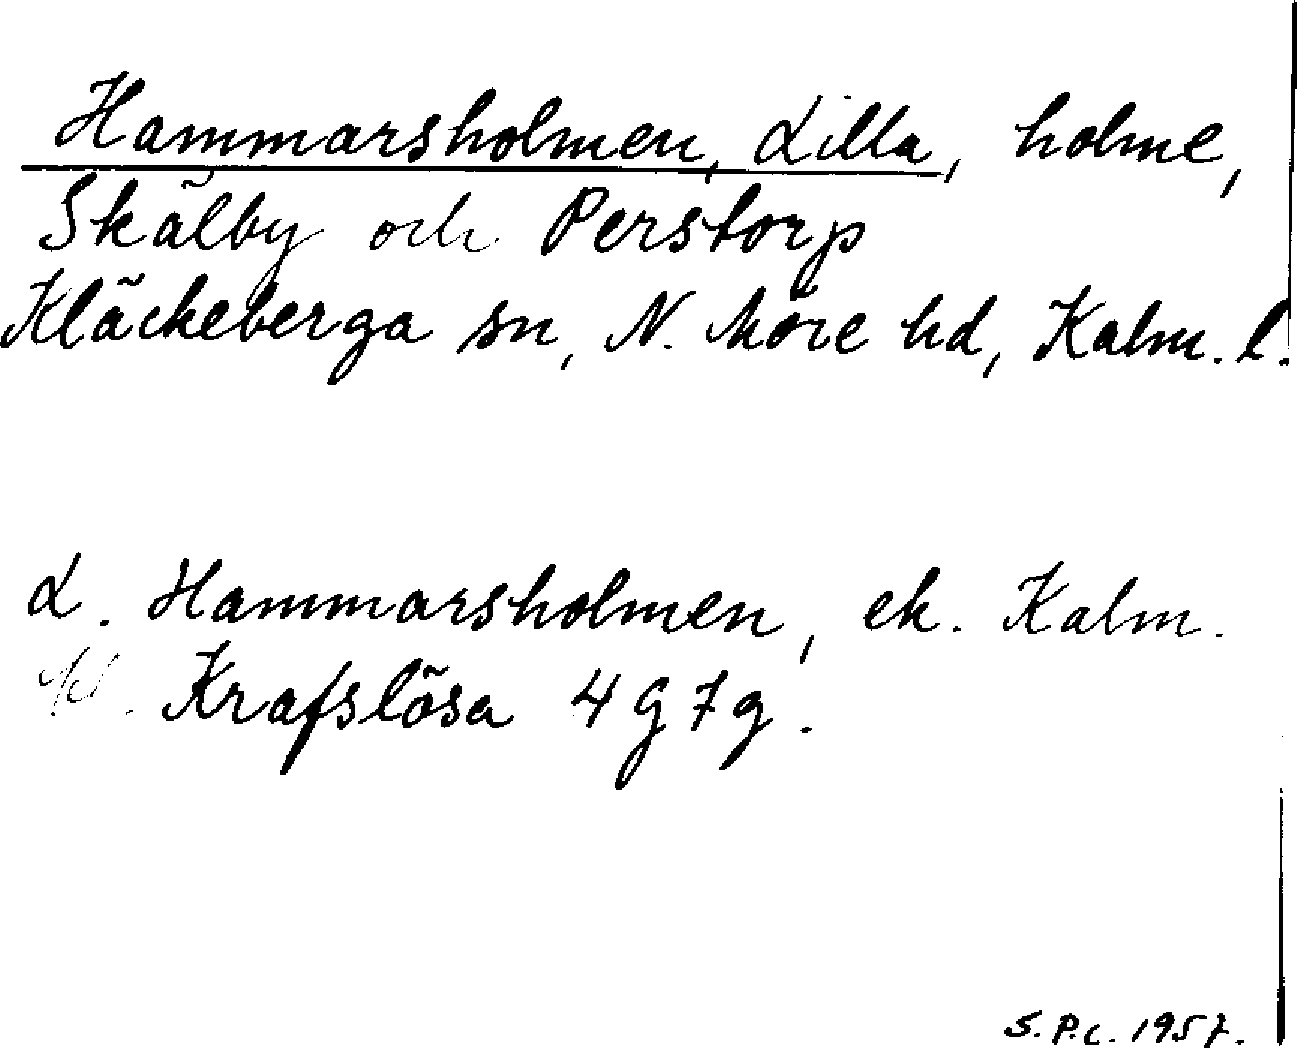 Hammarsholmen, Lilla, holme,
Skälby och Perstorp
Kläckeberga sn, N. Möre hd, Kalm. l.
L. Hammarsholmen, ek. Kalm.
Krafslösa 4 G 7 g.
S. P. c. 1957.